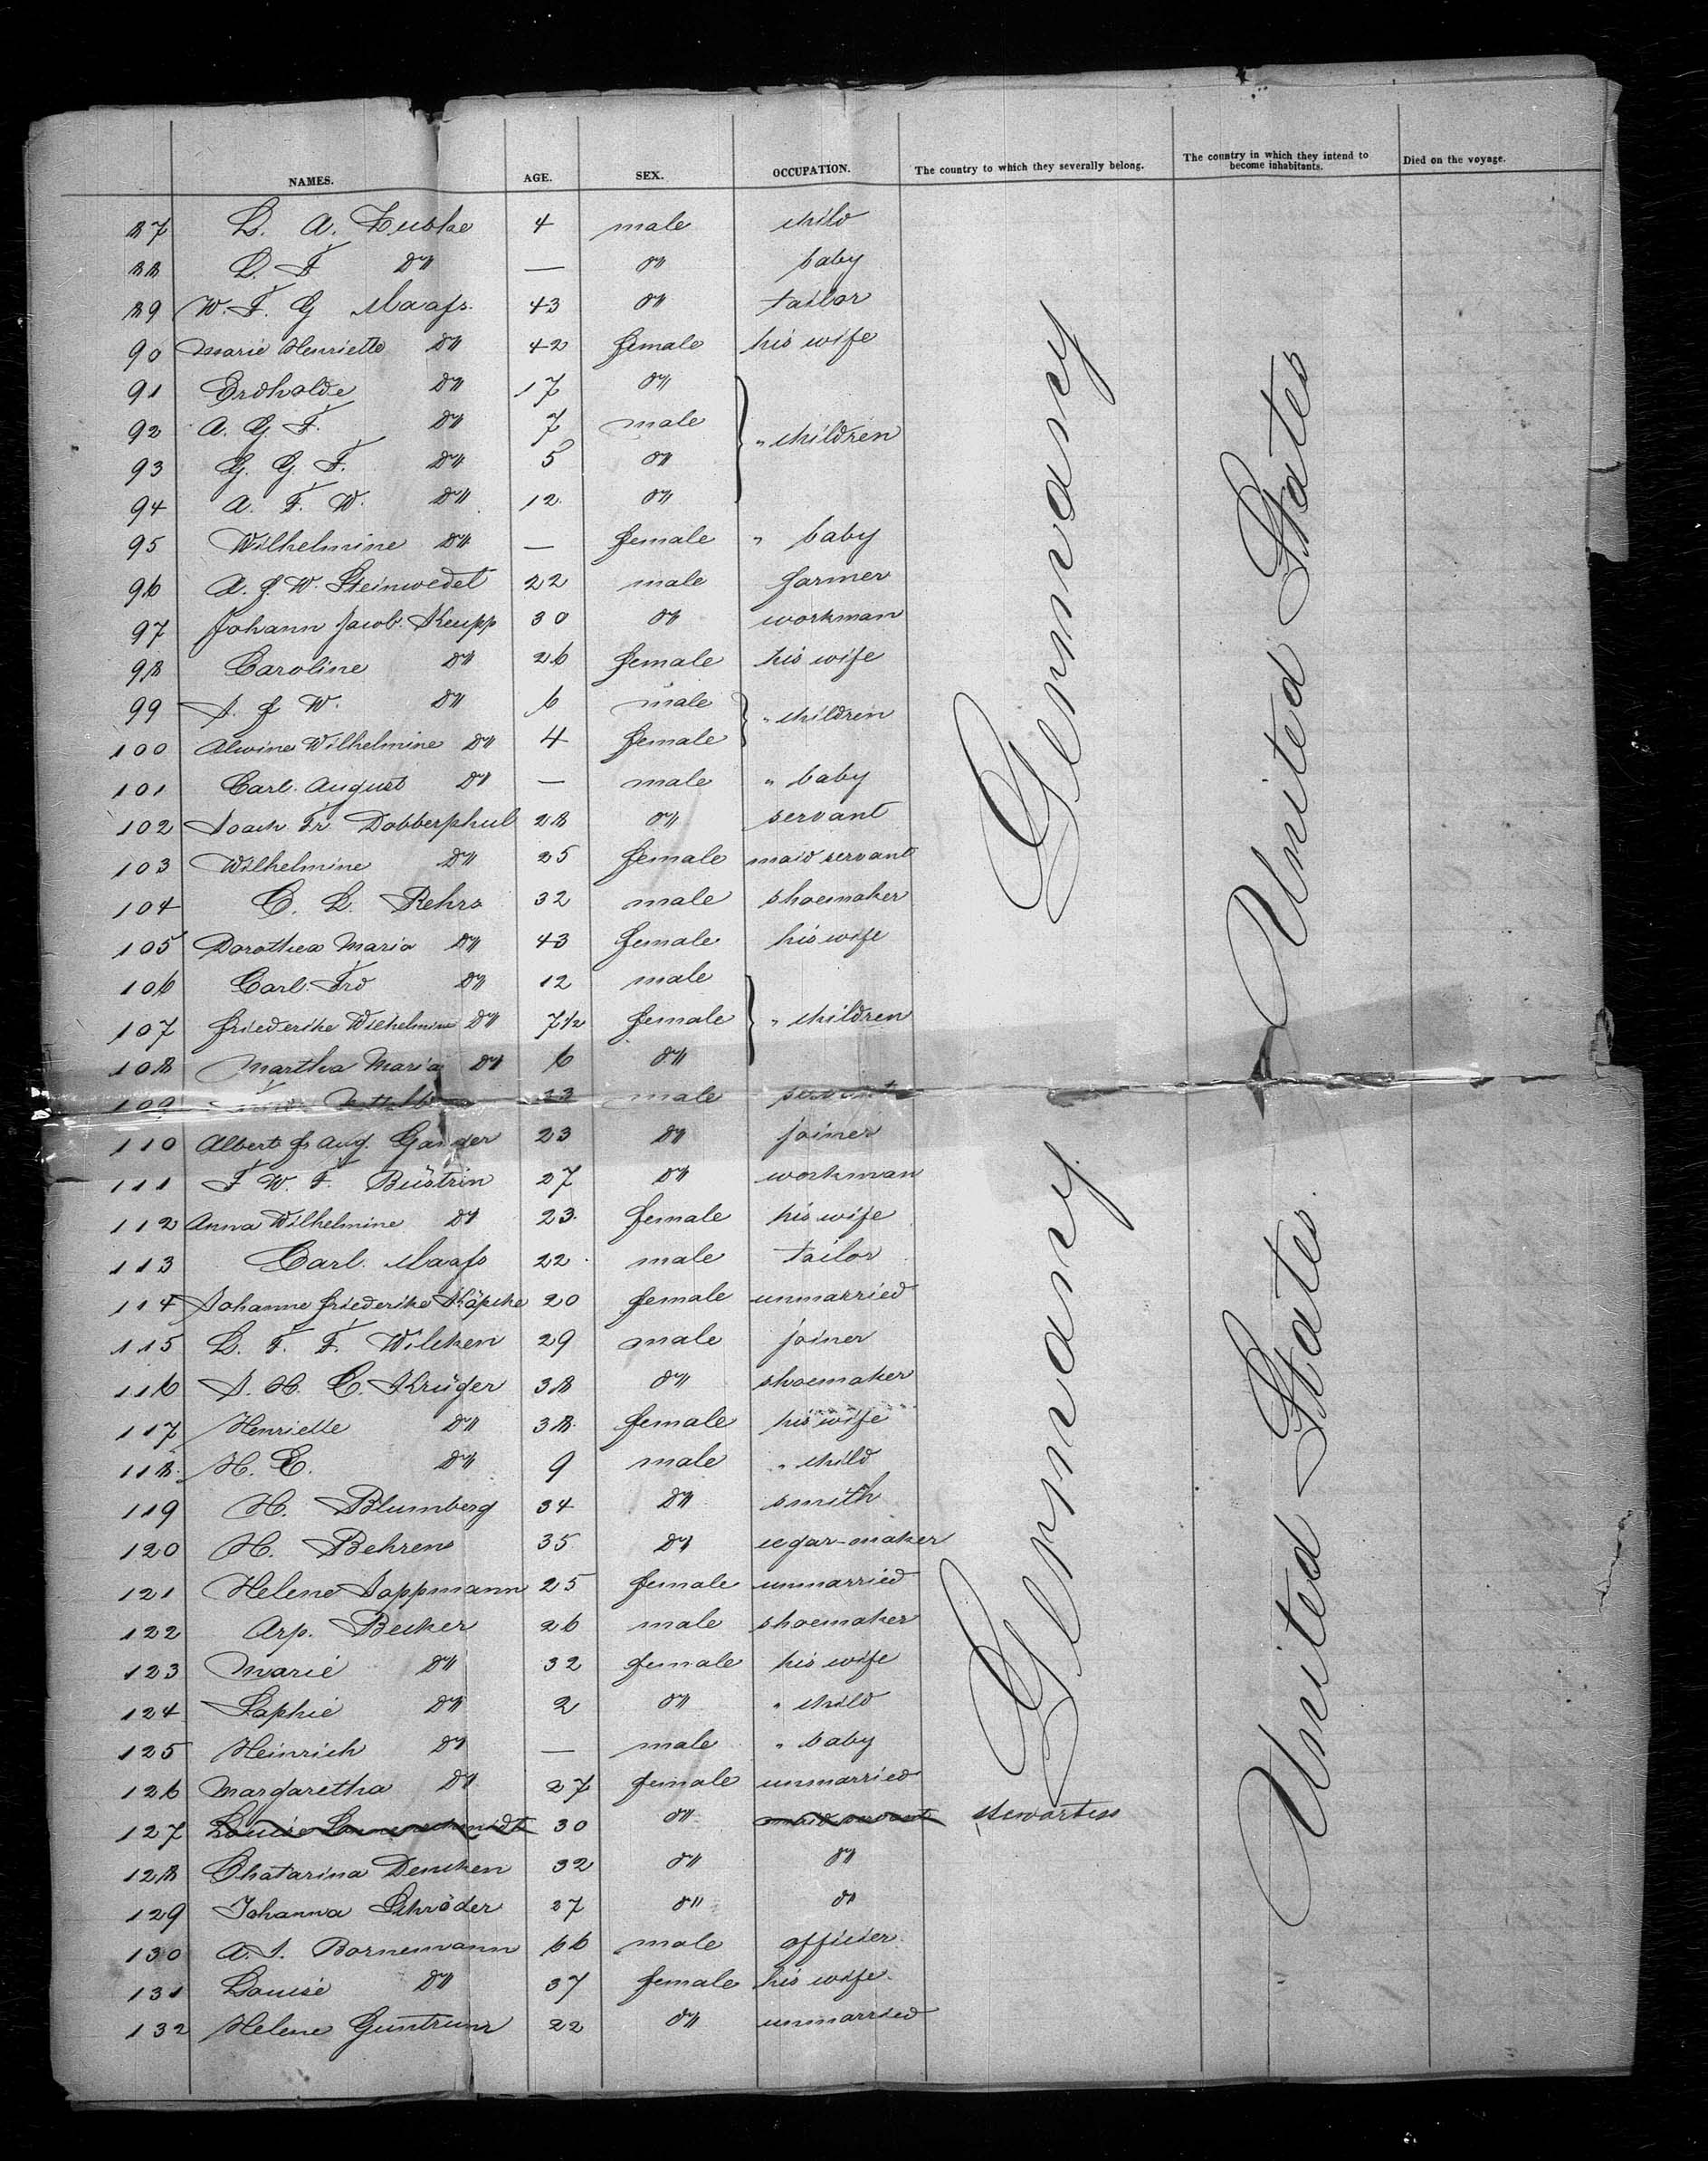 NAMES. AGE. SEX. OCCUPATION. The country to which they severally belong. The country in which they intend to become inhabitants. Died on the voyage.
87 L. A. 4 male child
88 L. F. Do — Do baby
89 W. F. G Maaſs. 43 Do tailor
90 Marie Henriette Do 42 female his wife
91 Do 17 Do
92 A. G. F. Do 7 male " children
93 G. G. F. Do 5 Do
94 A. F. W. Do 12 Do
95 Wilhelmine Do — female " baby
96 A. J. W. Steinwedel 22 male farmer
97 Johann Jacob Keupp 30 Do workman
98 Caroline Do 26 female his wife
99 J. W. Do 6 male " children
100 Alwine Wilhelmine Do 4 female
101 Carl August Do — male " baby
102 Joach Fr Dobberphul 28 Do servant
103 Wilhelmine Do 25 female maid servant
104 C. L. Rehrs 32 male shoemaker
105 Dorothea Maria Do 43 female his wife
106 Carl Frd Do 12 male
107 Friederike Wilhelmine Do 7½ female " children
108 Martha Maria Do 6 Do
109 23 male servant
110 Albert Aug. Gander 23 Do joiner
111 F. W. F. Büstrin 27 Do workman
112 Anna Wilhelmine Do 23 female his wife
113 Carl Maaſs 22 male tailor
114 Johanne Friederike Köpcke 20 female unmarried
115 L. F. F. Wilcken 29 male joiner
116 J. H. C. Krüger 38 Do shoemaker
117 Henriette Do 38 female his wife
118 H. E. Do 9 male " child
119 H. Blumberg 34 Do smith
120 H. Behrens 35 Do cegar-maker
121 Helene Jappmann 25 female unmarried
122 Arp. Becker 26 male shoemaker
123 Marie Do 32 female his wife
124 Sophie Do 2 Do " child
125 Heinrich Do — male " baby
126 Margaretha Do 27 female unmarried
127 Louise 30 Do maid servant stewartess
128 Chatarina Dencken 32 Do Do
129 Johanna Schröder 27 Do Do
130 A. J. Bornemann 66 male officier
131 Louise Do 37 female his wife
132 Helene Guntrum 22 Do unmarried
Germany
United States
Germany
United States